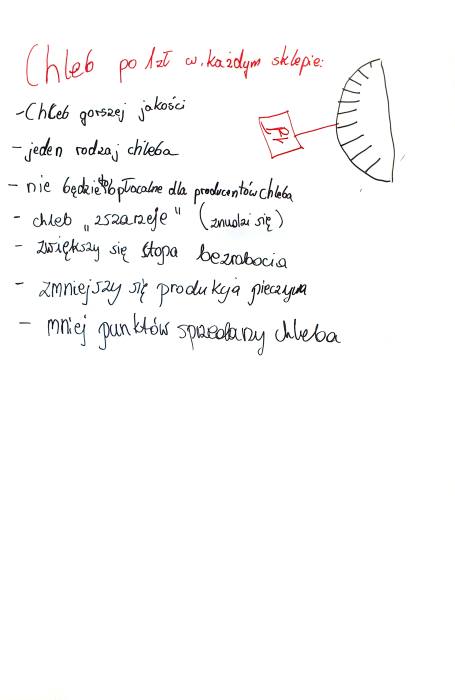 Chleb po 1zł w każdym sklepie:
- Chleb gorszej jakości
- jeden rodzaj chleba
- nie będzie to opłacalne dla producentów chleba
- chleb „zszarzeje" (znudzi się)
- zwiększy się stopa bezrobocia
- zmniejszy się produkcja pieczywa
- mniej punktów sprzedarzy chleba